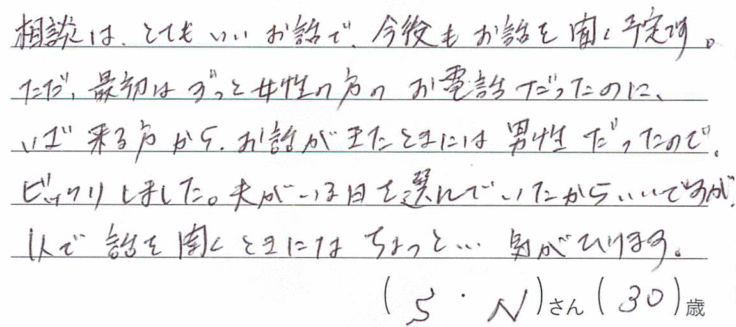 相談は、とてもいいお話で、今後もお話を聞く予定です。
ただ、最初はずっと女性の方のお電話だったのに、
いざ来る方から、お話がきたときには男性だったので、
ビックリしました。夫がいる日を選んでいたからいいですが、
1人で話を聞くときにはちょっと… 気がひけます。
(S・N)さん(30)歳